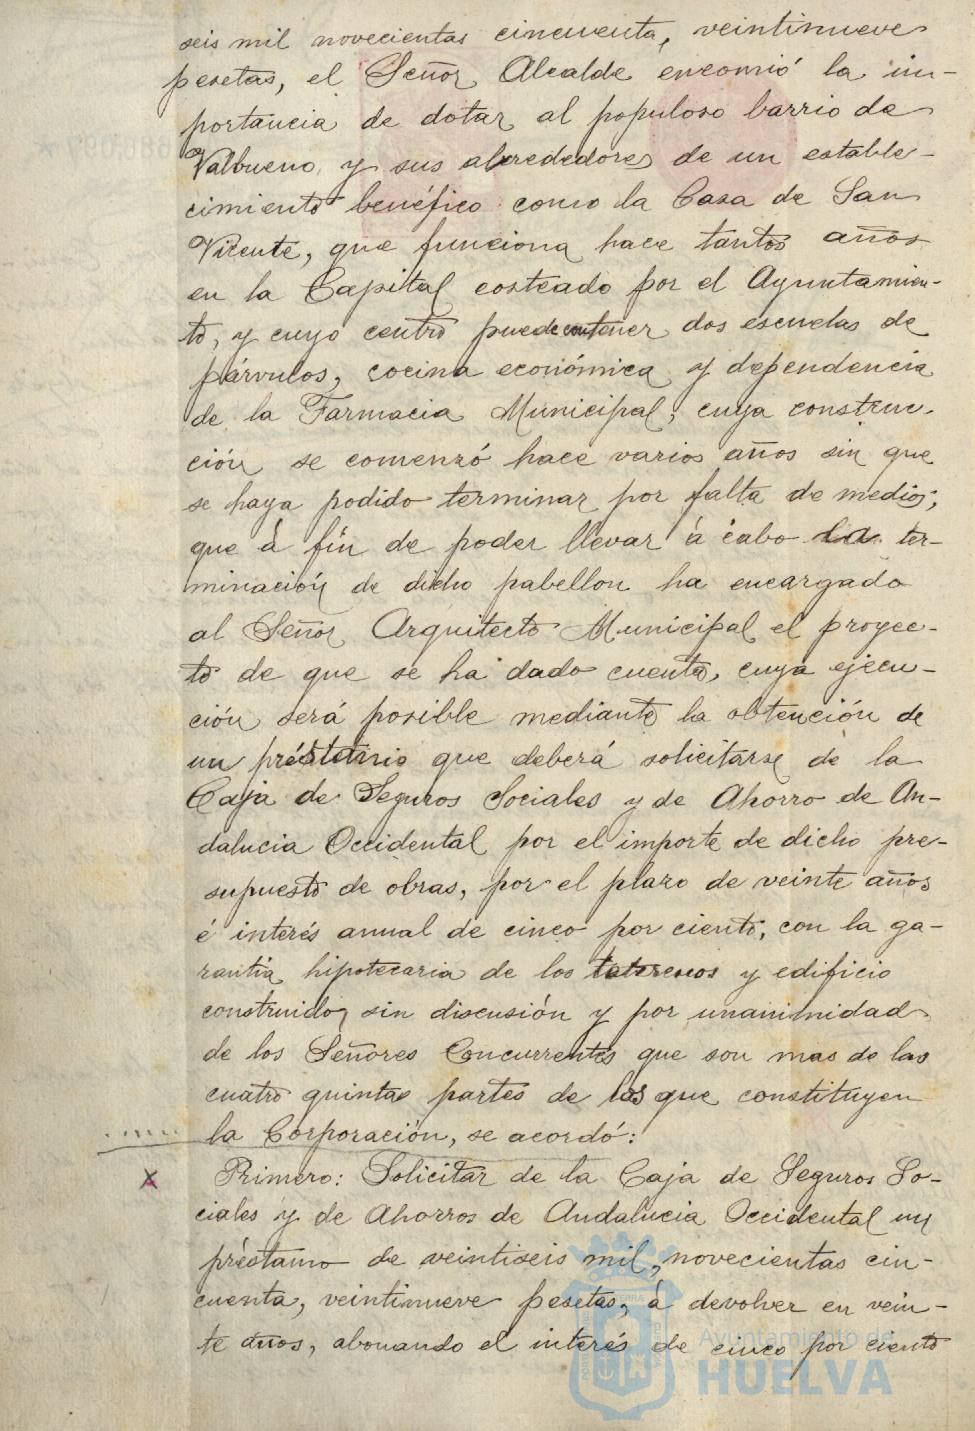 seis mil novecientas cincuenta, veintinueve
pesetas, el Señor Alcalde encomió la im-
portancia de dotar al populoso barrio de
Valbueno, y sus alrededores de un estable-
cimiento benéfico como la Casa de San
Vicente, que funciona hace tantos años
en la Capital costeado por el Ayuntamien-
to, y cuyo centro puede contener dos escuelas de
párvulos, cocina económica y dependencia
de la Farmacia Municipal, cuya construc-
ción se comenzó hace varios años sin que
se haya podido terminar por falta de medios;
que á fin de poder llevar á cabo la ter-
minación de dicho pabellon ha encargado
al Señor Arquitecto Municipal el proyec-
to de que se ha dado cuenta, cuya ejecu-
ción será posible mediante la obtención de
un préstamo que deberá solicitarse de la
Caja de Seguros Sociales y de Ahorro de An-
dalucia Occidental por el importe de dicho pre-
supuesto de obras, por el plazo de veinte años
é interés anual de cinco por ciento, con la ga-
rantía hipotecaria de los terrenos y edificio
construido, sin discusión y por unanimidad
de los Señores Concurrentes que son mas de las
cuatro quintas partes de los que constituyen
la Corporación, se acordó:
x Primero: Solicitar de la Caja de Seguros So-
ciales y de Ahorros de Andalucia Occidental un
préstamo de veintiseis mil, novecientas cin-
cuenta, veintinueve pesetas, á devolver en vein-
te años, abonando el interés de cinco por ciento
Ayuntamiento de
HUELVA